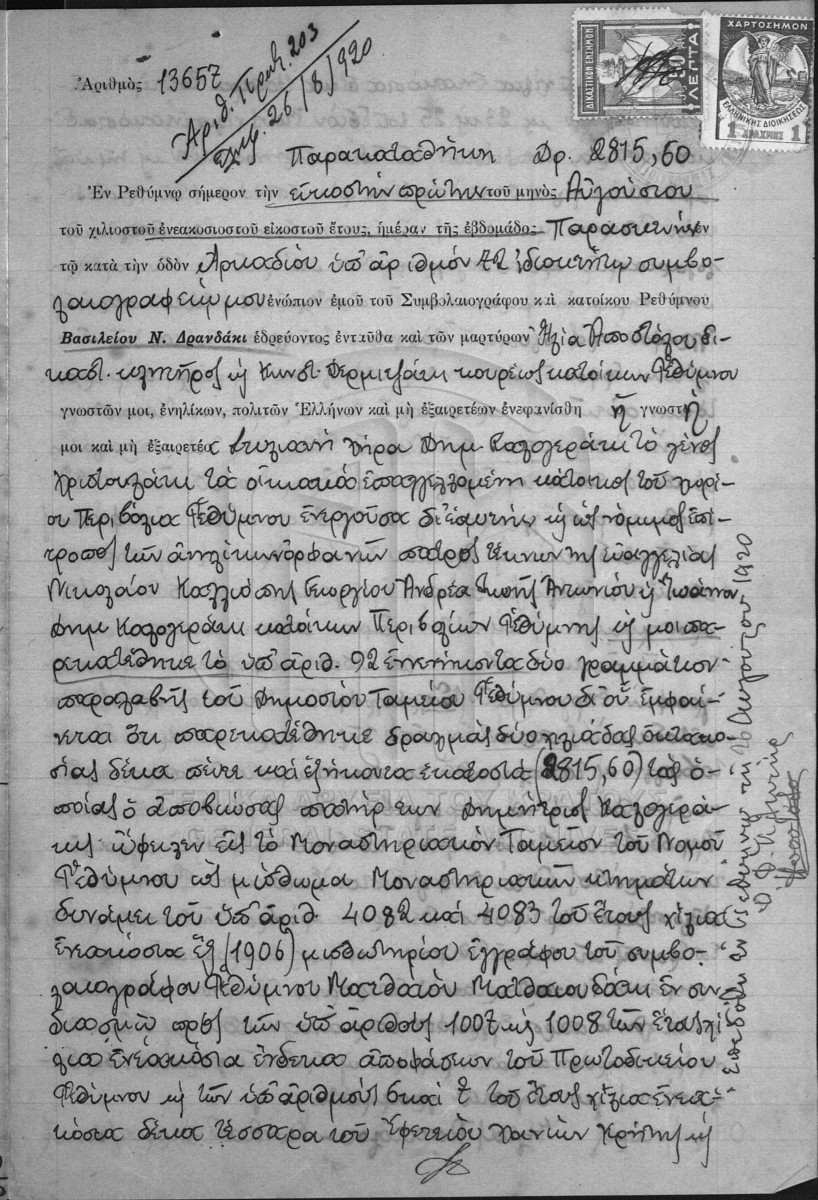 Ἀριθμὸς 13657
Ἀριθ. Πρωτ. 203
26/8/920
ΔΙΚΑΣΤΙΚΟΝ ΕΝΣΗΜΟΝ
50 ΛΕΠΤΑ
ΧΑΡΤΟΣΗΜΟΝ
ΕΛΛΗΝΙΚΗΣ ΔΙΟΙΚΗΣΕΩΣ
1 ΔΡΑΧΜΗΣ 1
Παρακαταθήκη Δρ. 2815,60
Ἐν Ρεθύμνῳ σήμερον τὴν εἰκοστὴν πρώτην τοῦ μηνὸς Αὐγούστου
τοῦ χιλιοστοῦ ἐνεακοσιοστοῦ εἰκοστοῦ ἔτους, ἡμέραν τῆς ἑβδομάδος Παρασκευὴν ἐν
τῷ κατὰ τὴν ὁδὸν Ἀρκαδίου ὑπ' ἀριθμὸν ἰδιοκτήτῳ συμβο-
λαιογραφείῳ μου ἐνώπιον ἐμοῦ τοῦ Συμβολαιογράφου καὶ κατοίκου Ρεθύμνου
Βασιλείου Ν. Δρανδάκι ἑδρεύοντος ἐνταῦθα καὶ τῶν μαρτύρων Ἠλία Ἀποστόλου δι-
καστ. κλητῆρος κ Κωνστ. Δερμιτζάκι κουρέως κατοίκων Ρεθύμνου
γνωστῶν μοι, ἐνηλίκων, πολιτῶν Ἑλλήνων καὶ μὴ ἐξαιρετέων ἐνεφανίσθη ἡ γνωστή
μοι καὶ μὴ ἐξαιρετέα Στυλιανὴ χήρα Δημ. Καλογεράκι τὸ γένος
Χριστουλάκι τὰ οἰκιακὰ ἐπαγγελλομένη κάτοικος τοῦ χωρί-
ου Περιβόλια Ρεθύμνου ἐνεργοῦσα δι' ἑαυτὴν κ ὡς νόμιμος ἐπί-
τροπος τῶν ἀνηλίκων ὀρφανῶν πατρὸς τέκνων της Εὐαγγελίας
Νικολάου Καλλιόπης Γεωργίου Ἀνδρέα Ἀντωνίου κ Ἰωάννου
Δημ. Καλογεράκι κατοίκων Περιβολίων Ρεθύμνης κ μοι πα-
ρεκατέθηκε τὸ ὑπ' ἀριθ. 92 ἐννενήκοντα δύο γραμμάτιον
παραλαβῆς τοῦ Δημοσίου Ταμείου Ρεθύμνου δι' οὗ ἐμφαί-
νεται ὅτι παρεκατέθηκε δραχμὰς δύο χιλιάδας ὀκτακο-
σίας δέκα πέντε καὶ ἑξήκοντα ἑκατοστὰ (2815,60) τὰς ὁ-
ποίας ὁ ἀποβιώσας πατήρ των Δημήτριος Καλογερά-
κις ὤφειλεν εἰς τὸ Μοναστηριακὸν Ταμεῖον τοῦ Νομοῦ
Ρεθύμνου ὡς μίσθωμα Μοναστηριακῶν κτημάτων
δυνάμει τοῦ ὑπ' ἀριθ. 4082 καὶ 4083 τοῦ ἔτους χίλια
ἐνεακόσια ἕξ (1906) μισθωτηρίου ἐγγράφου τοῦ συμβο-
λαιογράφου Ρεθύμνου Ματθαίου Ματθαιουδάκι ἐν συν
δυασμῷ πρὸς τῶν ὑπ' ἀριθοὺς 1007 κ 1008 τῶν ἔτους χί
λια ἐνεακόσια ἕνδεκα ἀποφάσεων τοῦ Πρωτοδικείου
Ρεθύμνου κ τῶν ὑπ' ἀριθμοὺς 6 καὶ 7 τοῦ ἔτους χίλια ἐνεα-
κόσια δέκα τέσσαρα τοῦ Ἐφετείου Χανίων Κρήτης κ
ἐν Ρεθύμνῳ τῇ 26 Αὐγούστου 1920